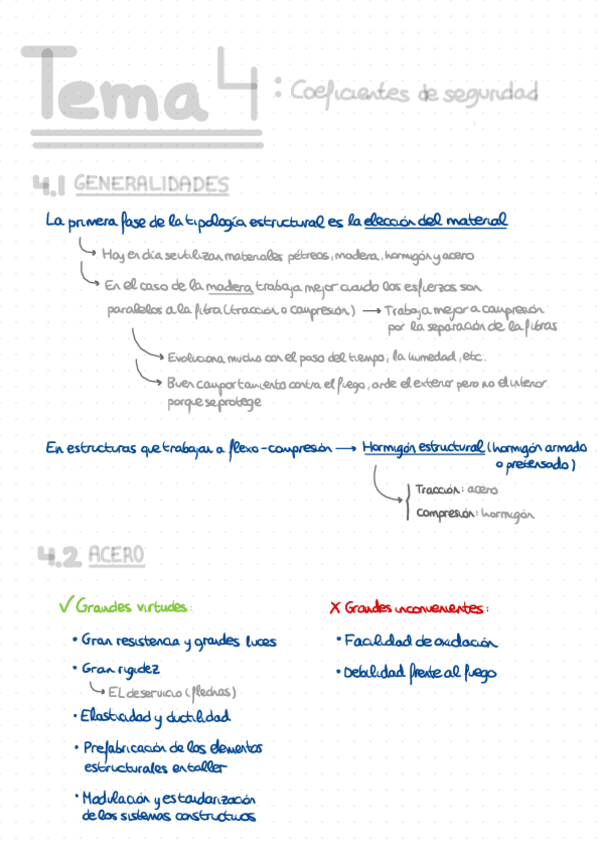 Tema 4: Coeficientes de seguridad
4.1 GENERALIDADES
La primera fase de la tipología estructural es la elección del material
Hoy en día se utilizan materiales pétreos, madera, hormigón y acero
En el caso de la madera trabaja mejor cuando los esfuerzos son
paralelos a la fibra (tracción o compresión) → Trabaja mejor a compresión
por la separación de la fibras
Evoluciona mucho con el paso del tiempo, la humedad, etc.
Buen comportamiento contra el fuego, arde el exterior pero no el interior
porque se protege
En estructuras que trabajan a flexo-compresión → Hormigón estructural (hormigón armado
o pretensado)
Tracción: acero
Compresión: hormigón
4.2 ACERO
✓ Grandes virtudes:
• Gran resistencia y grandes luces
• Gran rigidez
EL de servicio (flechas)
• Elasticidad y ductilidad
• Prefabricación de los elementos
estructurales en taller
• Modulación y estandarización
de los sistemas constructivos
X Grandes inconvenientes:
• Facilidad de oxidación
• Debilidad frente al fuego